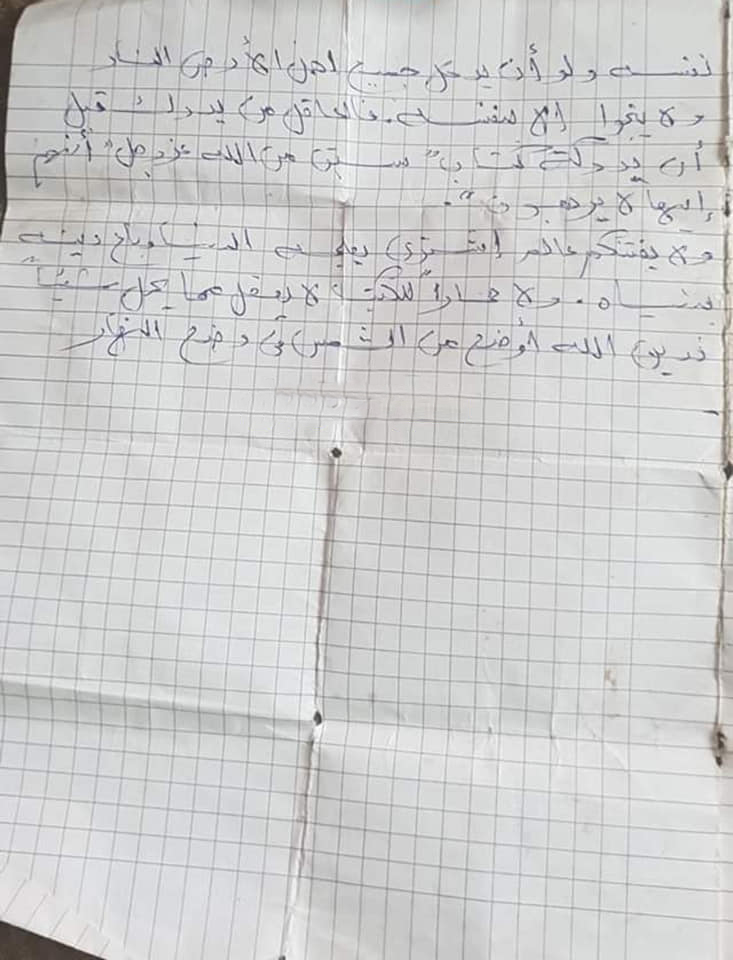 نفسه ولو أن يدخل جميع أهل الأرض النار
ولا ينجوا إلا بنفسه. فالعاقل من يدرك قبل
أن يدركه كتاب" سبق من الله عز وجل" أنهم
إليها لا يرجعون".
ولا يفتنكم عالم اشترى بعلمه الدنيا وباع دينه
بدنياه. ولا حماراً للكتب لا يعقل مما يحمل شيئاً
فدين الله أوضح من الشمس في وضح النهار